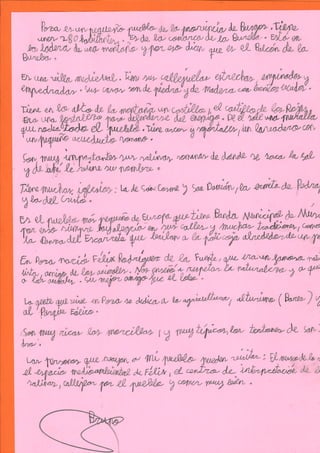 Poza es un pequeño pueblo de la provincia de Burgos. Tiene
unos 280 habitantes. Es de la comarca de la Bureba. Está en
la ladera de una montaña y por eso dicen que es el Balcón de la
Bureba.
Es una villa medieval. Con sus callejuelas estrechas, empinadas y
empedradas. Sus casas son de piedra y de madera con
Tiene en lo alto de la montaña un castillo, el castillo de los Rojas.
Era una fortaleza para defenderse del enemigo. De él sale una muralla
que rodea todo el pueblo. Tiene arcos y un lavadero con
un pequeño acueducto romano.
Son muy importantes sus salinas, romanas de donde se saca la sal
y de ahí le viene su nombre.
Tiene muchas iglesias: La de San Cosme y San Damián, la ermita de Pedra
y la del Cristo.
Es el pueblo más pequeño de Europa que tiene Banda Municipal de Mús
por eso siempre hay alegría en sus calles y muchas tradiciones, como
la Danza del Escarrete que bailan a la alrededor de un
En Poza nació Félix Rodríguez de la Fuente, que era un famoso natu
lista, amigo de los animales. Nos enseñó a respetar la naturaleza y a qu
a los animales. Su mejor amigo fue el lobo.
La gente que vive en Poza se dedica a la agricultura, al turismo (Bares) y
al Parque Eólico.
Son muy ricas las morcillas, y muy típicos, los de San
Las personas que vengan a mi pueblo pueden visitar: El museo de la
el espacio medioambiental de Félix, el centro de interpretación de l
salinas, callejear por el pueblo y comer muy bien.
Bruno